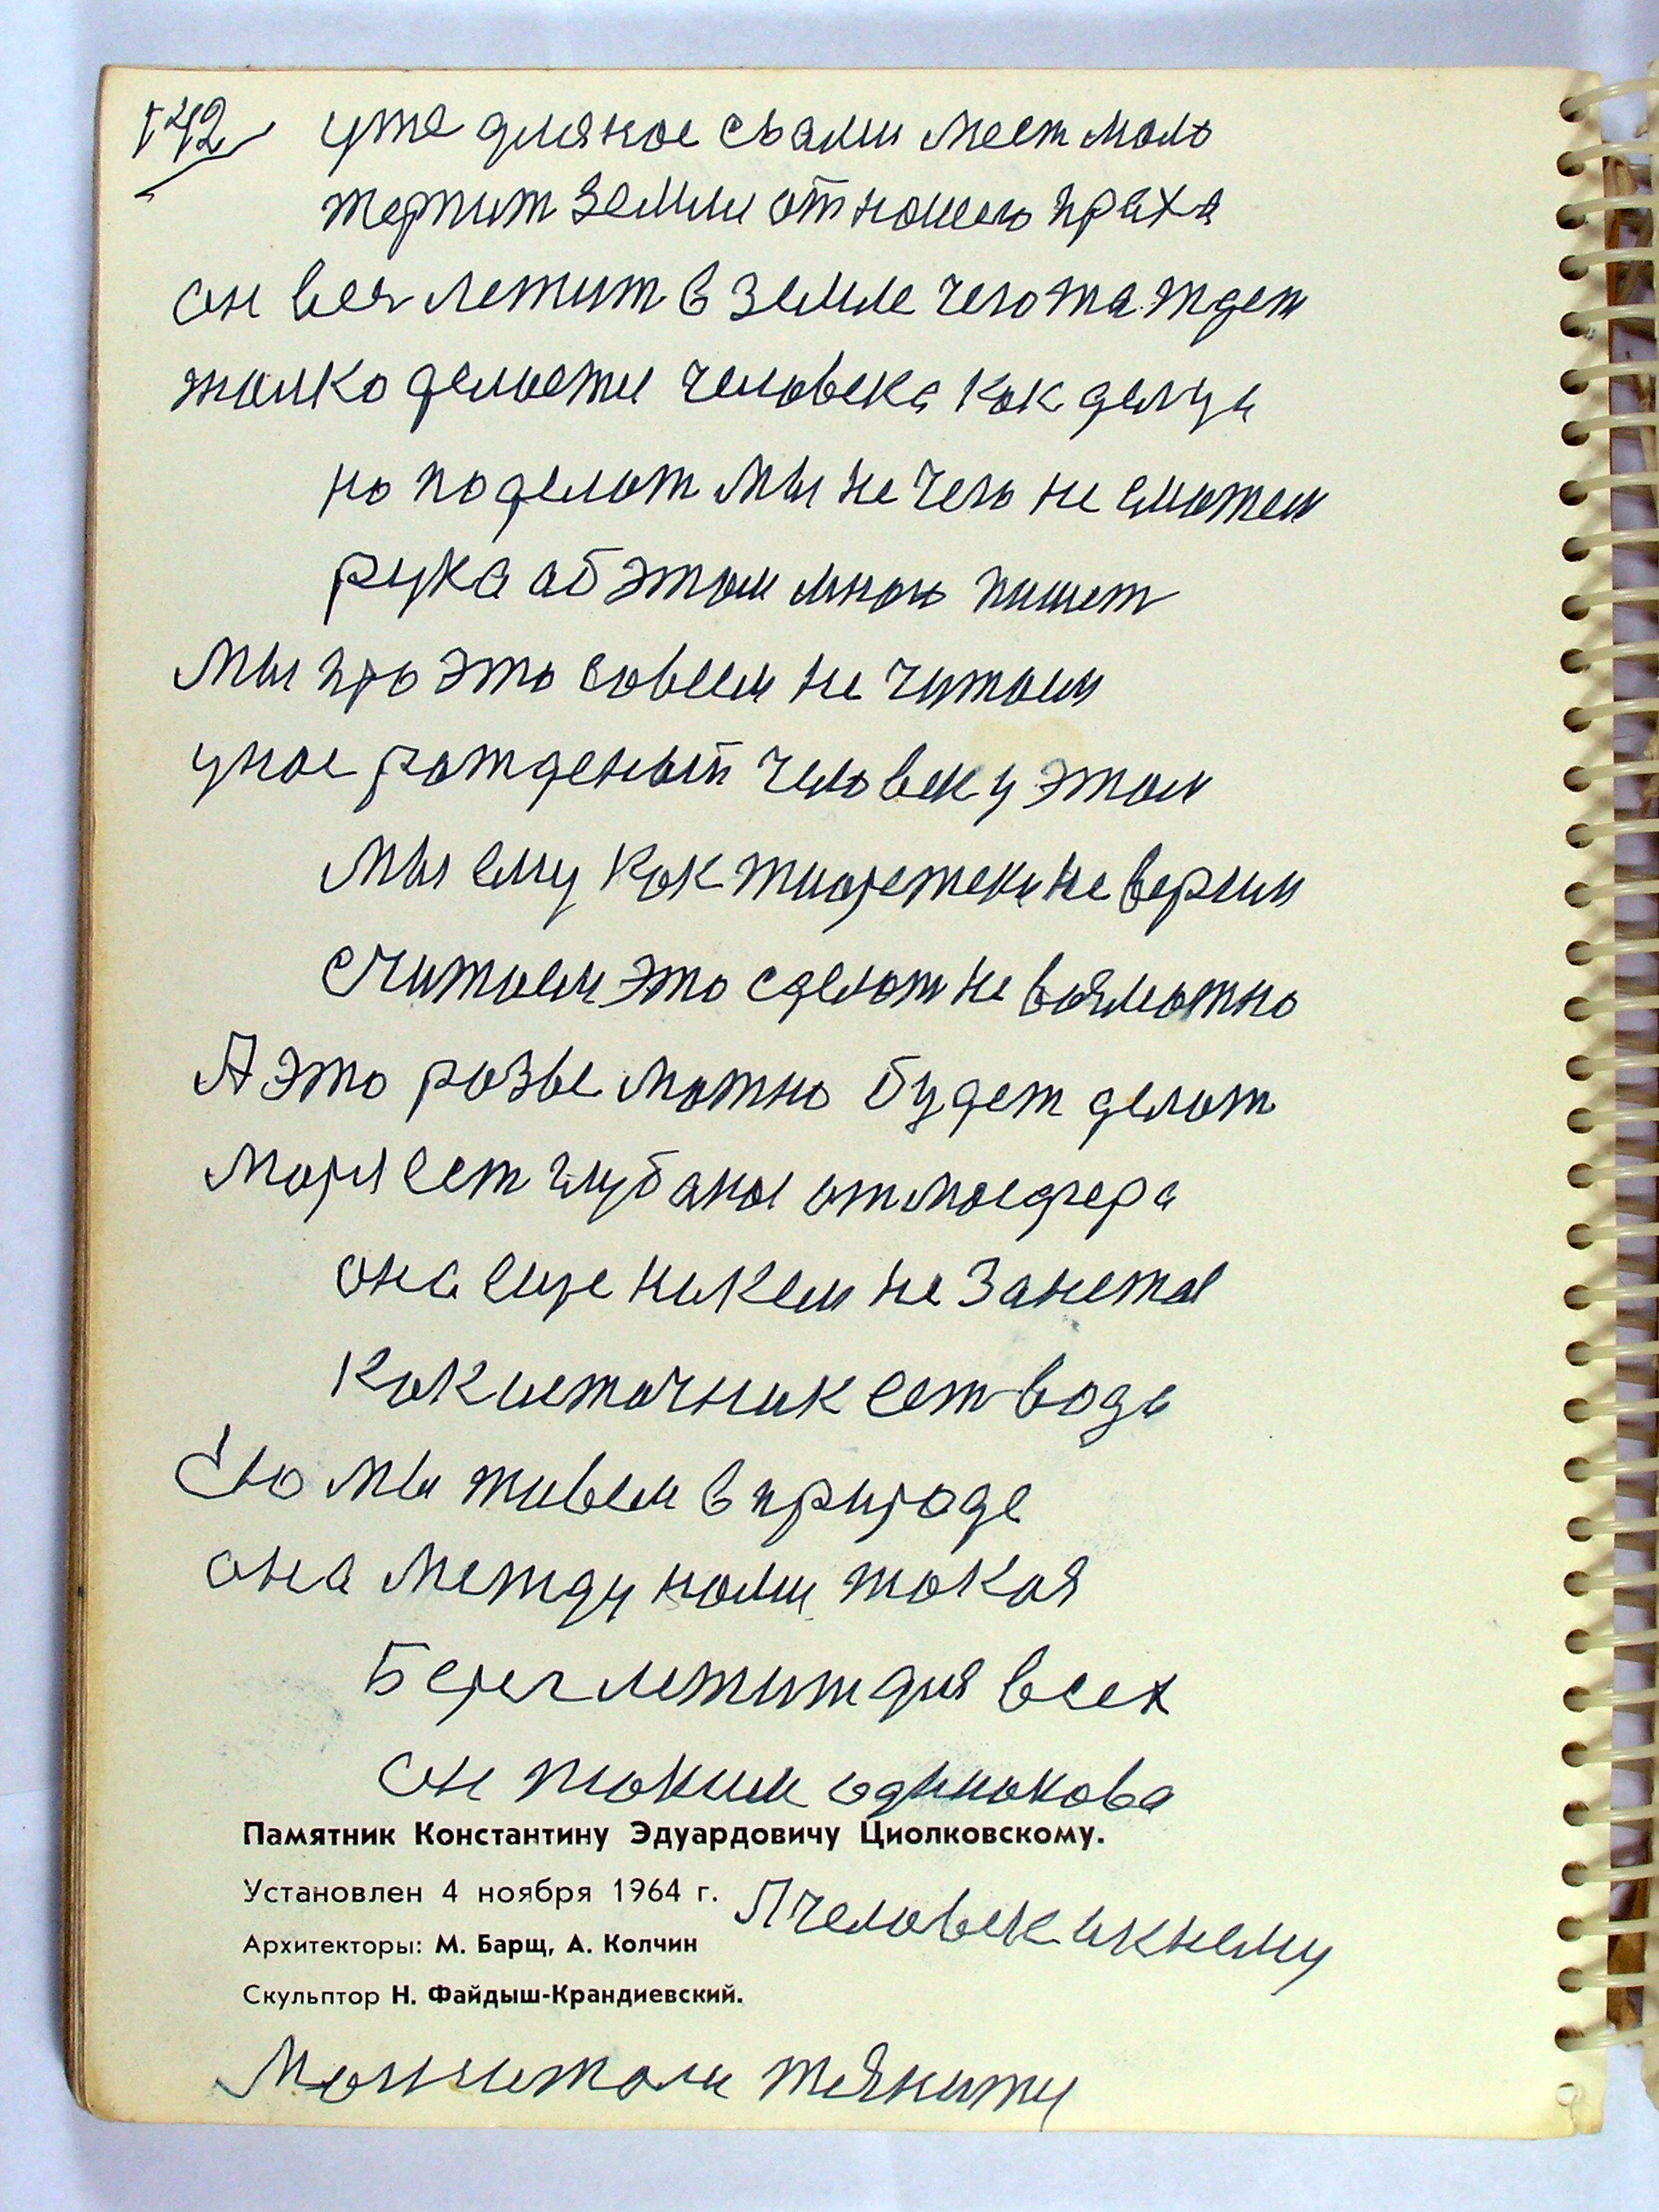 142 уже для нас с вами мест мало
терпит земли от нашего праха
он весь летит в земле чего та ждет
жалко делаете человека как делца
но поделат мы не чего не сможем
рука аб этом много пишет
мы про это совсем не читаем
у нас рожденый человек у этом
мы ему как не верим
считаем это сделат не возможно
А это розве можно будет делат
моря ест глубаны отмосфера
она еще никем не занета
как источник ест вода
Ею мы живем в природе
она между нами такая
Берег летит для всех
он таким одинакова
Памятник Константину Эдуардовичу Циолковскому.
Установлен 4 ноября 1964 г.
А человек и к нему
Архитекторы: М. Барщ, А. Колчин
Скульптор Н. Файдыш-Крандиевский.